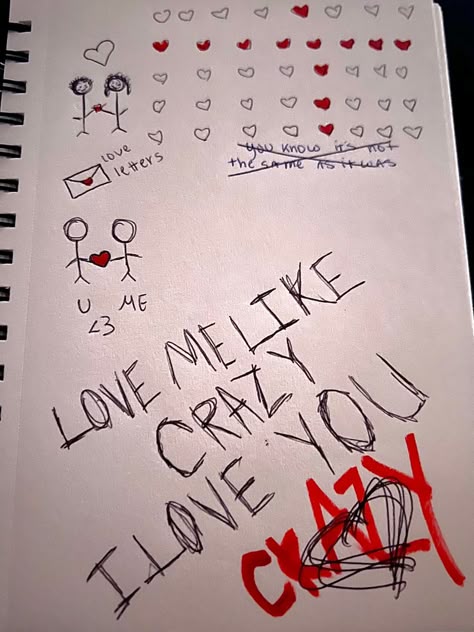 love
letters
you know it's not
the same as it was
U ME
<3
LOVE ME LIKE
CRAZY
I LOVE YOU
CRAZY